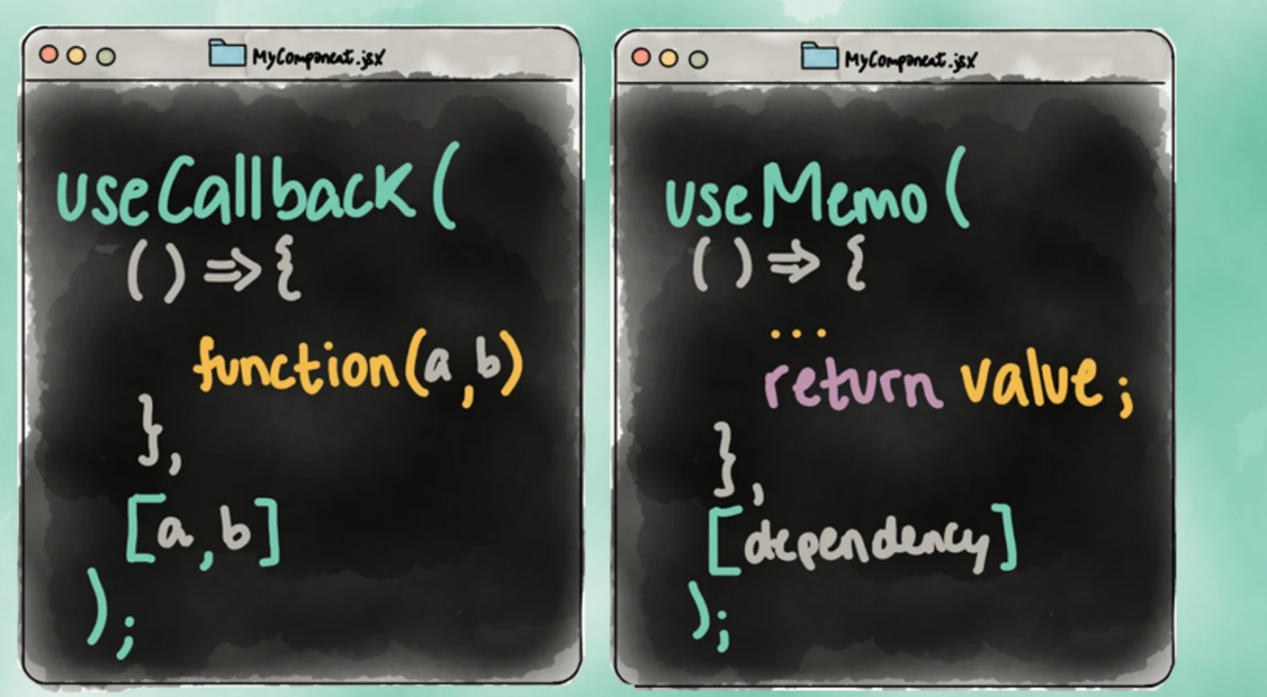 MyComponent.jsx
useCallback(
() => {
function(a,b)
},
[a,b]
);
MyComponent.jsx
useMemo(
() => {
...
return value;
},
[dependency]
);